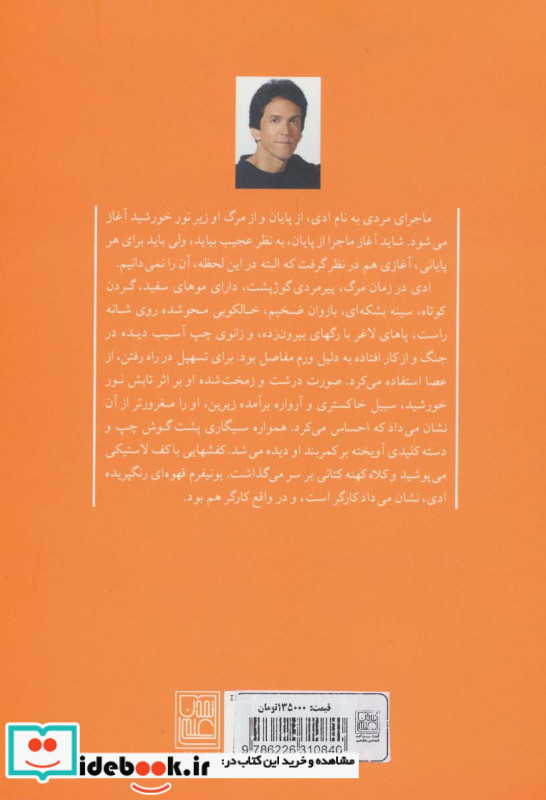 ماجرای مردی به نام ادی، از پایان و از مرگ او زیر نور خورشید آغاز
می‌شود. شاید آغاز ماجرا از پایان، به نظر عجیب بیاید، ولی باید برای هر
پایانی، آغازی هم در نظر گرفت که البته در این لحظه، آن را نمی‌دانیم.
ادی در زمان مرگ، پیرمردی گوژپشت، دارای موهای سفید، گردن
کوتاه، سینه بشکه‌ای، بازوان ضخیم، خالکوبی محوشده روی شانه
راست، پاهای لاغر با رگهای بیرون‌زده، و زانوی چپ آسیب دیده در
جنگ و از کار افتاده به دلیل ورم مفاصل بود. برای تسهیل در راه رفتن، از
عصا استفاده می‌کرد. صورت درشت و زمخت‌شده او بر اثر تابش نور
خورشید، سبیل خاکستری و آرواره برآمده زیرین، او را مغرورتر از آن
نشان می‌داد که احساس می‌کرد. همواره سیگاری پشت گوش چپ و
دسته کلیدی آویخته بر کمربند او دیده می‌شد. کفشهایی با کف لاستیکی
می‌پوشید و کلاه کهنه کتانی بر سر می‌گذاشت. یونیفرم قهوه‌ای رنگپریده
ادی، نشان می‌داد کارگر است، و در واقع کارگر هم بود.
قیمت: ۱۳۵۰۰۰تومان
9 786226 310840
idebook.ir
مشاهده و خرید این کتاب در: